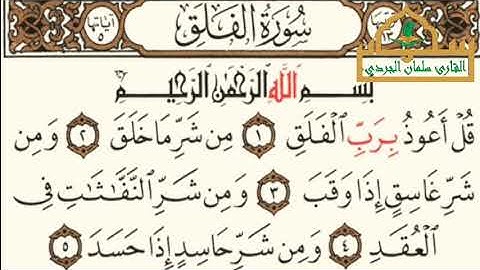 آياتها ٥
سُورَةُ الفَلَقِ
القارئ سلمان الجردي
بِسْمِ اللَّهِ الرَّحْمَٰنِ الرَّحِيمِ
قُلْ أَعُوذُ بِرَبِّ ٱلْفَلَقِ ١ مِن شَرِّ مَا خَلَقَ ٢ وَمِن
شَرِّ غَاسِقٍ إِذَا وَقَبَ ٣ وَمِن شَرِّ ٱلنَّفَّٰثَٰتِ فِى
ٱلْعُقَدِ ٤ وَمِن شَرِّ حَاسِدٍ إِذَا حَسَدَ ٥